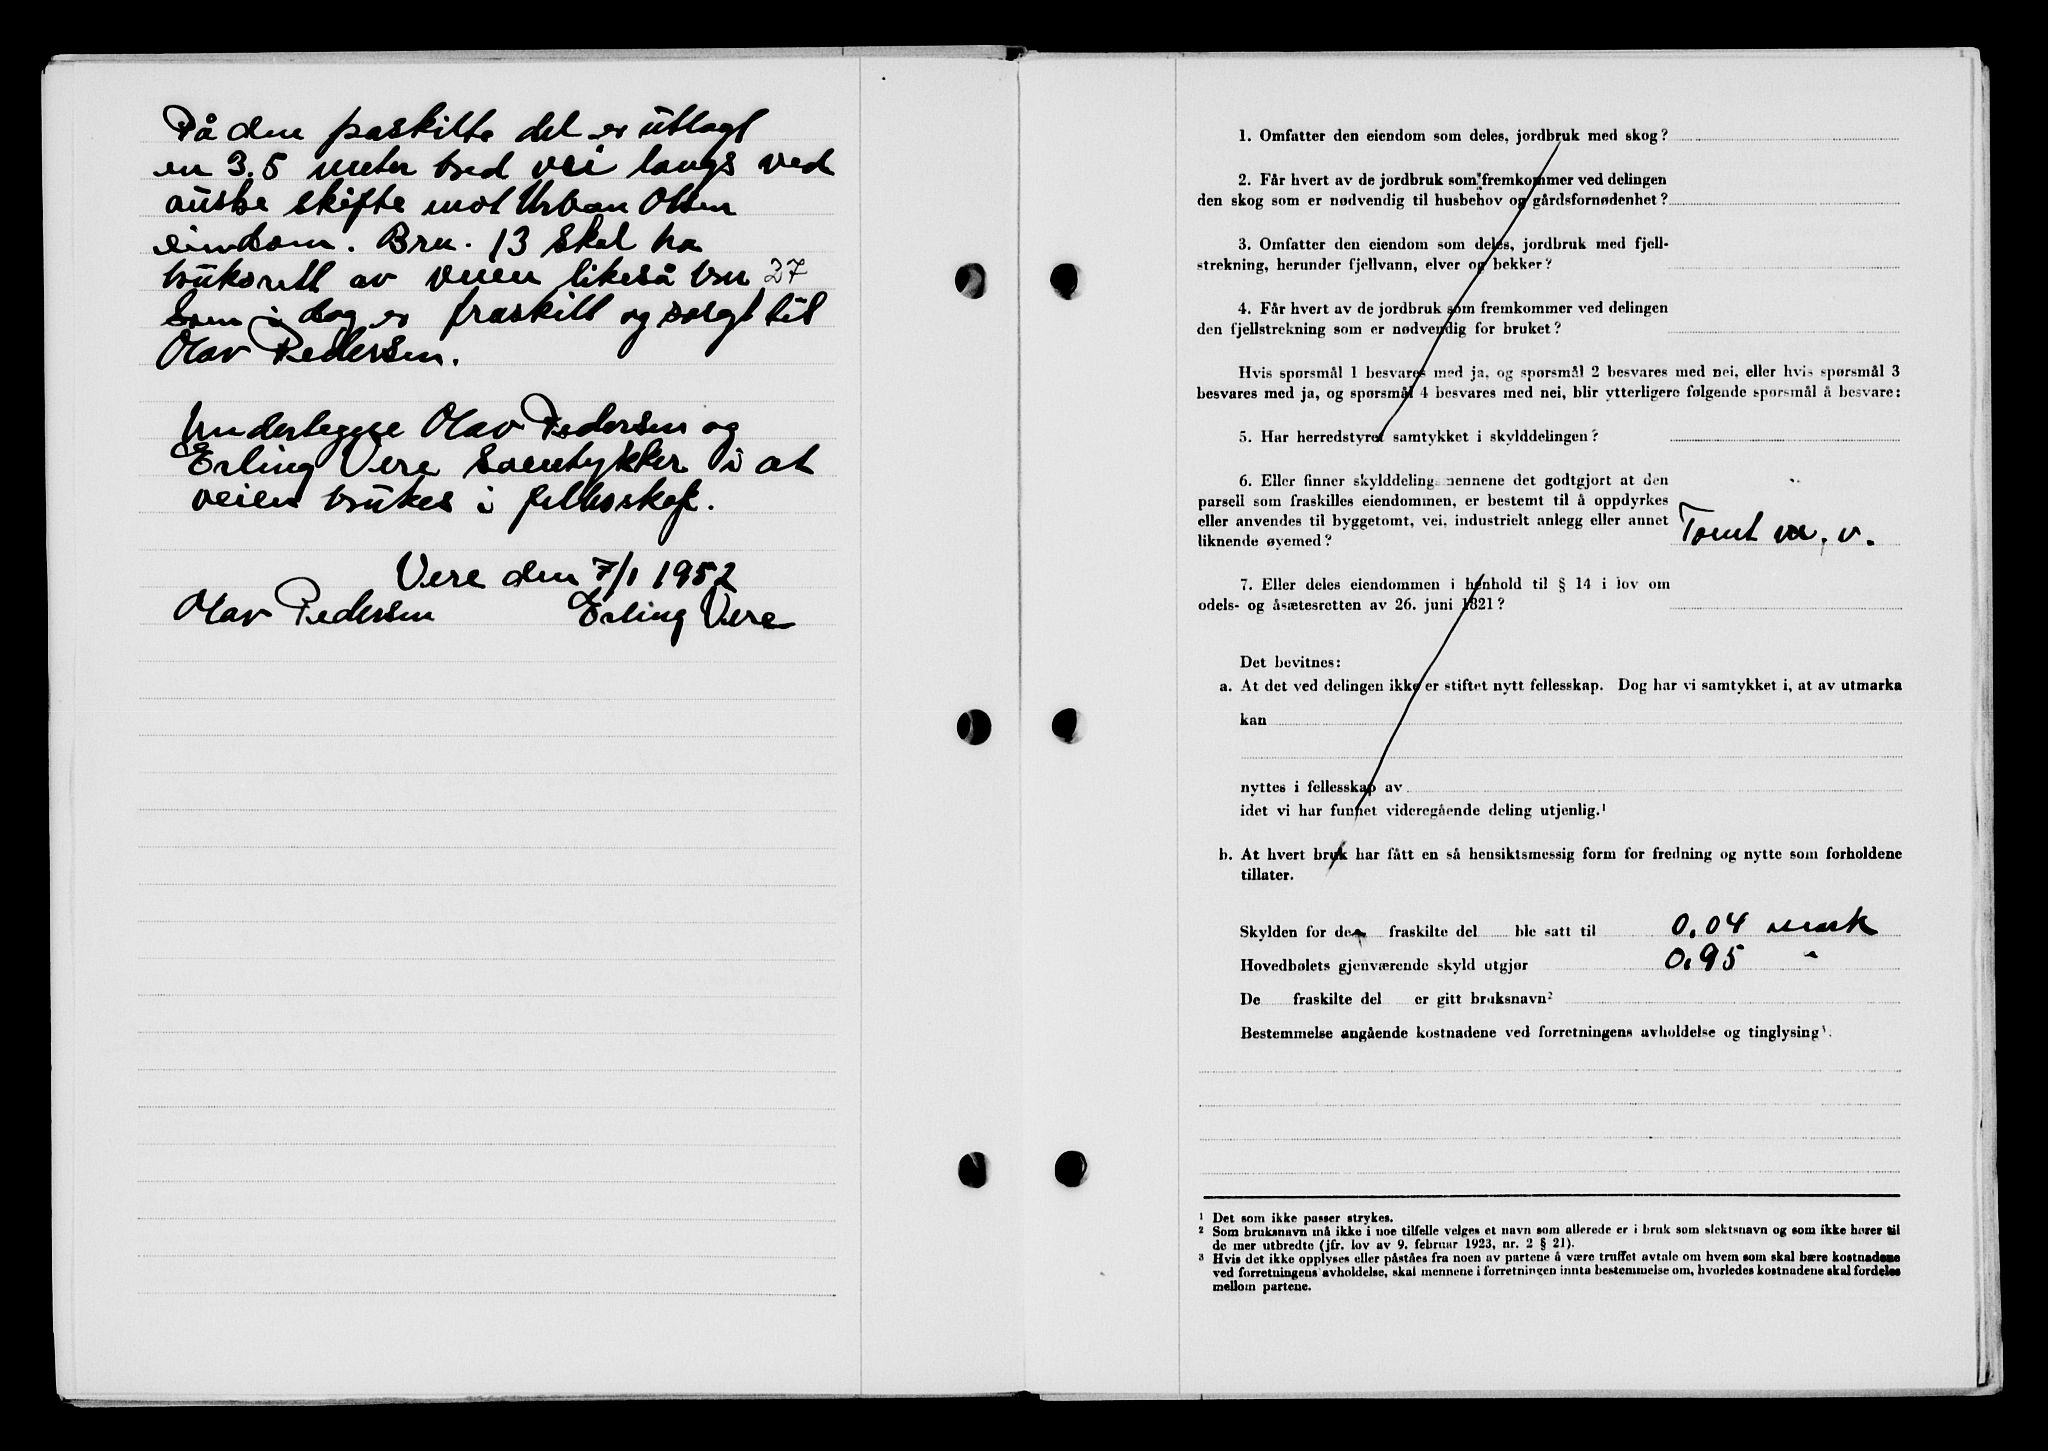 På den fraskilte del er utlagt
en 3.5 meter bred vei langs ved
austre skifte mot Urban Olsen
eiendom. Bru. 13 skal ha
bruksrett av veien likeså bru 27
som i dag er fraskilt og solgt til
Olav Pedersen.
Undertegne Olav Pedersen og
Erling Vere samtykker i at
veien brukes i felleskap.
Vere den 7/1 1952
Olav Pedersen Erling Vere
1. Omfatter den eiendom som deles, jordbruk med skog?
2. Får hvert av de jordbruk som fremkommer ved delingen
den skog som er nødvendig til husbehov og gårdsfornødenhet?
3. Omfatter den eiendom som deles, jordbruk med fjell-
strekning, herunder fjellvann, elver og bekker?
4. Får hvert av de jordbruk som fremkommer ved delingen
den fjellstrekning som er nødvendig for bruket?
Hvis spørsmål 1 besvares med ja, og spørsmål 2 besvares med nei, eller hvis spørsmål 3
besvares med ja, og spørsmål 4 besvares med nei, blir ytterligere følgende spørsmål å besvare:
5. Har herredstyret samtykket i skylddelingen?
6. Eller finner skylddelingsmennene det godtgjort at den
parsell som fraskilles eiendommen, er bestemt til å oppdyrkes
eller anvendes til byggetomt, vei, industrielt anlegg eller annet
liknende øyemed? Tomt m. v.
7. Eller deles eiendommen i henhold til § 14 i lov om
odels- og åsætesretten av 26. juni 1821?
Det bevitnes:
a. At det ved delingen ikke er stiftet nytt fellesskap. Dog har vi samtykket i, at av utmarka
kan
nyttes i fellesskap av
idet vi har funnet videregående deling utjenlig.¹
b. At hvert bruk har fått en så hensiktsmessig form for fredning og nytte som forholdene
tillater.
Skylden for den fraskilte del ble satt til 0.04 mark
Hovedbølets gjenværende skyld utgjør 0.95 "
De fraskilte del er gitt bruksnavn²
Bestemmelse angående kostnadene ved forretningens avholdelse og tinglysing³.
¹ Det som ikke passer strykes.
² Som bruksnavn må ikke i noe tilfelle velges et navn som allerede er i bruk som slektsnavn og som ikke hører til
de mer utbredte (jfr. lov av 9. februar 1923, nr. 2 § 21).
³ Hvis det ikke opplyses eller påståes fra noen av partene å være truffet avtale om hvem som skal bære kostnadene
ved forretningens avholdelse, skal mennene i forretningen innta bestemmelse om, hvorledes kostnadene skal fordeles
mellom partene.